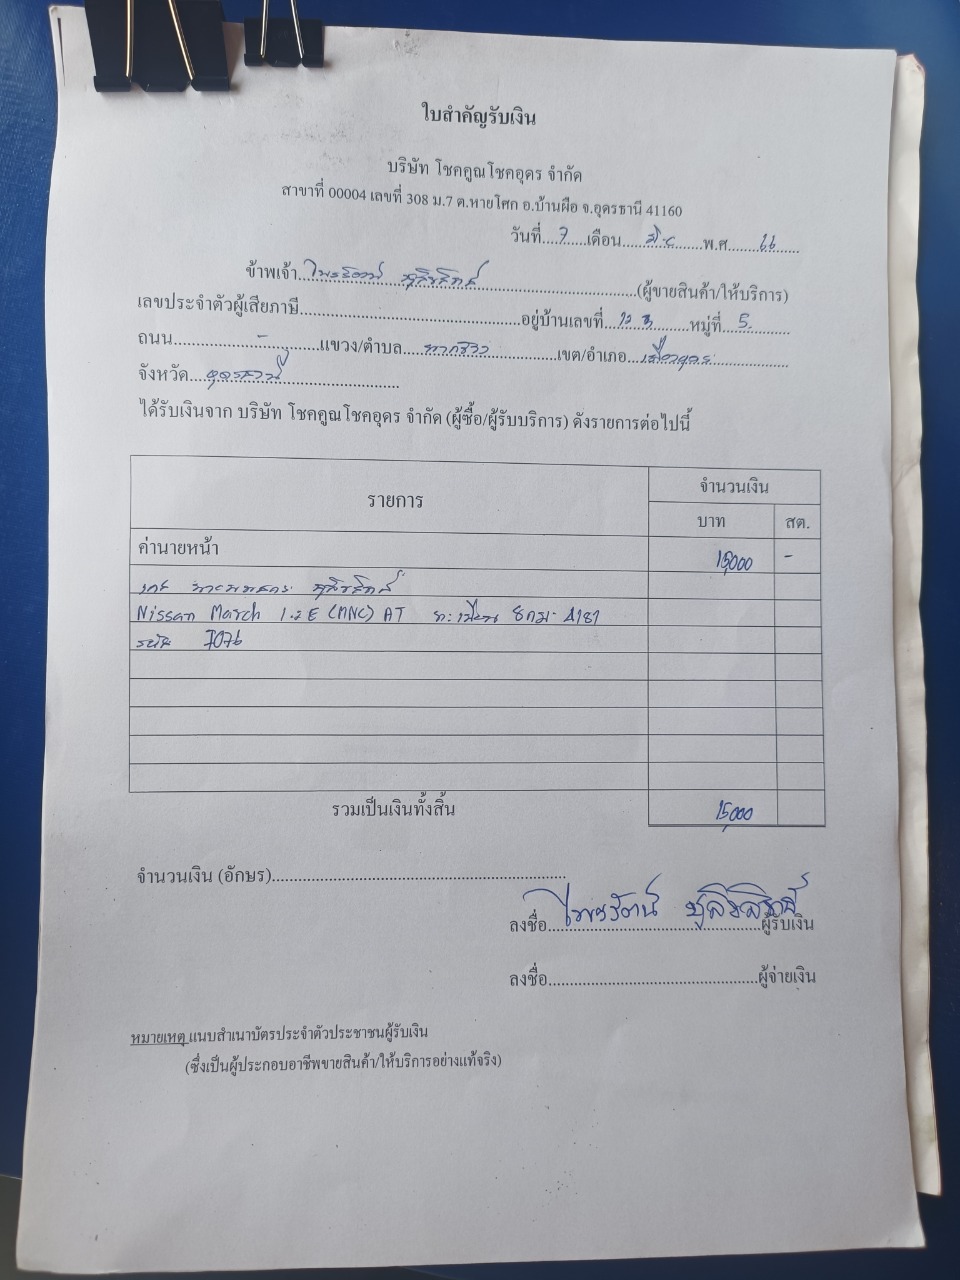 ใบสำคัญรับเงิน
บริษัท โชคคูณโชคอุดร จำกัด
สาขาที่ 00004 เลขที่ 308 ม.7 ต.หายโศก อ.บ้านผือ จ.อุดรธานี 41160
วันที่....7......เดือน..................พ.ศ.....66.....
ข้าพเจ้า....ไพรรัตน์..........(ผู้ขายสินค้า/ให้บริการ)
เลขประจำตัวผู้เสียภาษี..........อยู่บ้านเลขที่..........หมู่ที่...5...
ถนน.....-.....แขวง/ตำบล..........เขต/อำเภอ...เมืองอุดร...
จังหวัด...อุดรธานี...
ได้รับเงินจาก บริษัท โชคคูณโชคอุดร จำกัด (ผู้ซื้อ/ผู้รับบริการ) ดังรายการต่อไปนี้
รายการ จำนวนเงิน
บาท สต.
ค่านายหน้า 15,000 -
Nissan March 1.2 E (MNC) AT ทะเบียน 8กม-4181
รหัส 7076
รวมเป็นเงินทั้งสิ้น 15,000
จำนวนเงิน (อักษร)..........
ลงชื่อ...ไพรรัตน์..........ผู้รับเงิน
ลงชื่อ..........ผู้จ่ายเงิน
หมายเหตุ แนบสำเนาบัตรประจำตัวประชาชนผู้รับเงิน
(ซึ่งเป็นผู้ประกอบอาชีพขายสินค้า/ให้บริการอย่างแท้จริง)